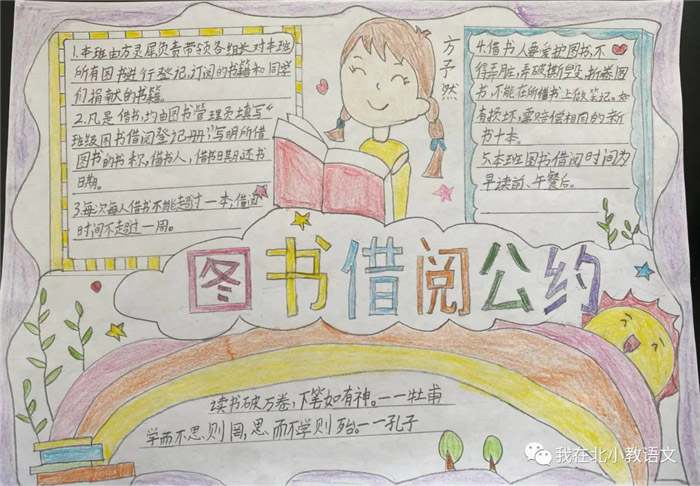 1.本班由方灵犀负责带领各组长对本班
所有图书进行登记,订阅的书籍和同学
们捐献的书籍。
2.凡是借书,均由图书管理员填写“
班级图书借阅登记册”,写明所借
图书的书权,借书人,借书日期还书
日期。
3.每次每人借书不能超过一本,借阅
时间不超过一周。
方子然
4.借书人要爱护图书,不
得弄脏,弄破撕毁,折卷图
书,不能在所借书上做笔记。如
有损坏,要赔偿相同的新
书十本。
5.本班图书借阅时间为
早读前、午餐后。
图书借阅公约
读书破万卷,下笔如有神。——牡甫
学而不思则罔,思而不学则殆。——孔子
我在北小教语文